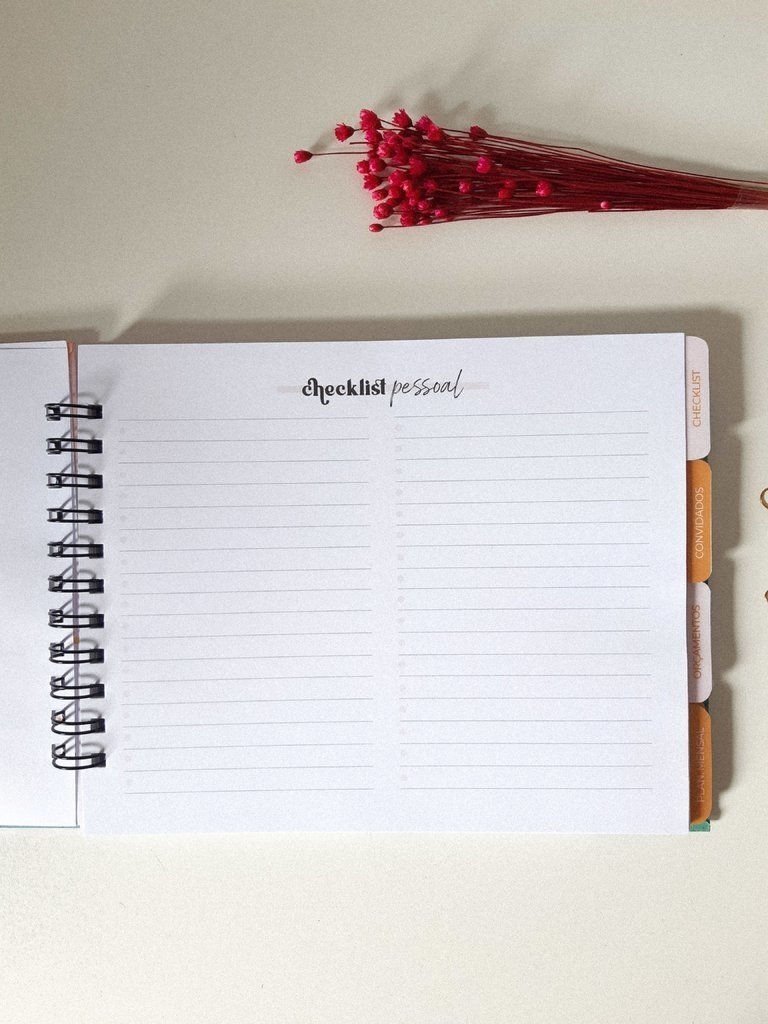 checklist pessoal
CHECKLIST
CONVIDADOS
ORÇAMENTOS
PLAN. MENSAL